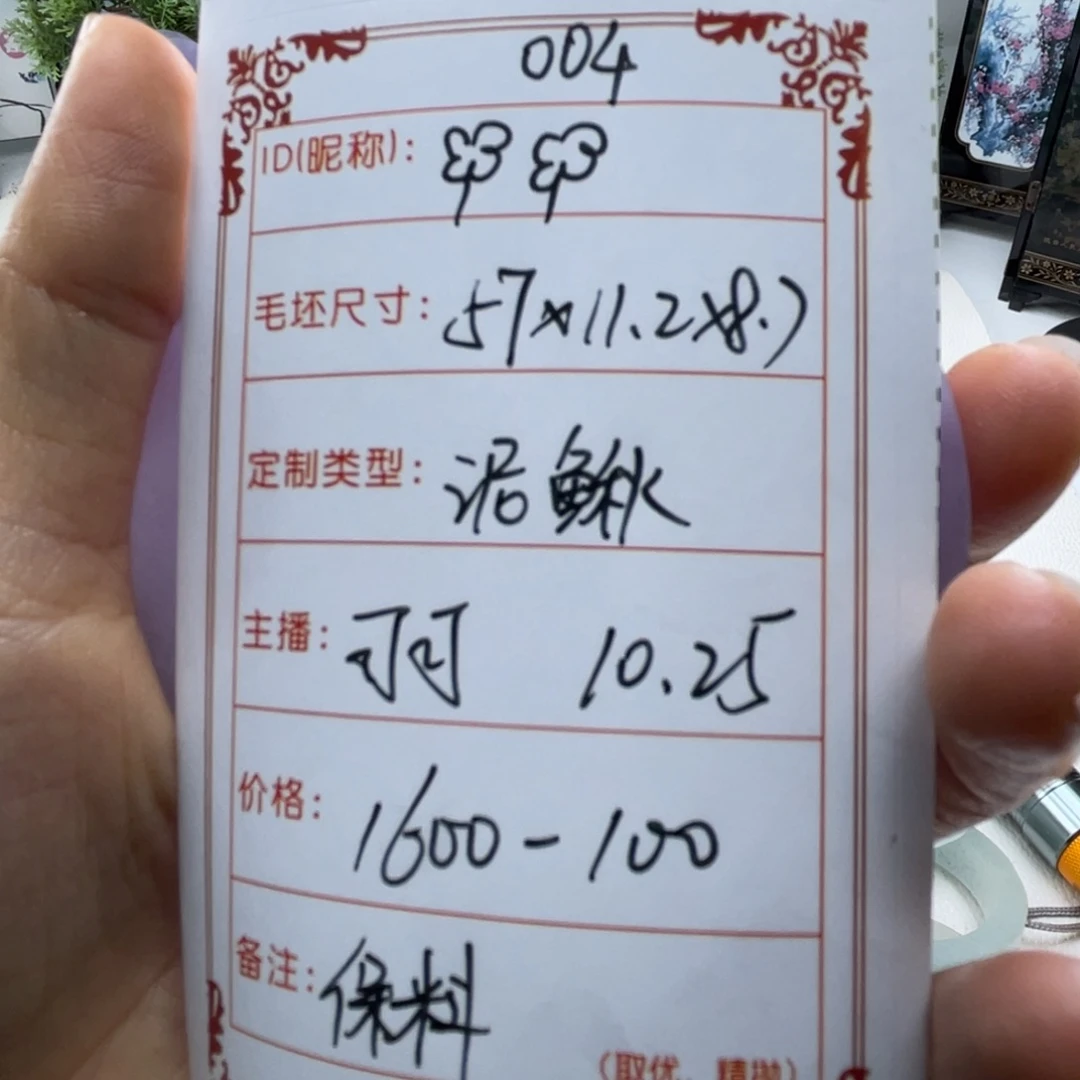 004
ID(昵称):
毛坯尺寸: 57×11.2×8.7
定制类型: 泥鳅
主播: 珂 10.25
价格: 1600-100
备注: 保料
(取优、精抛)